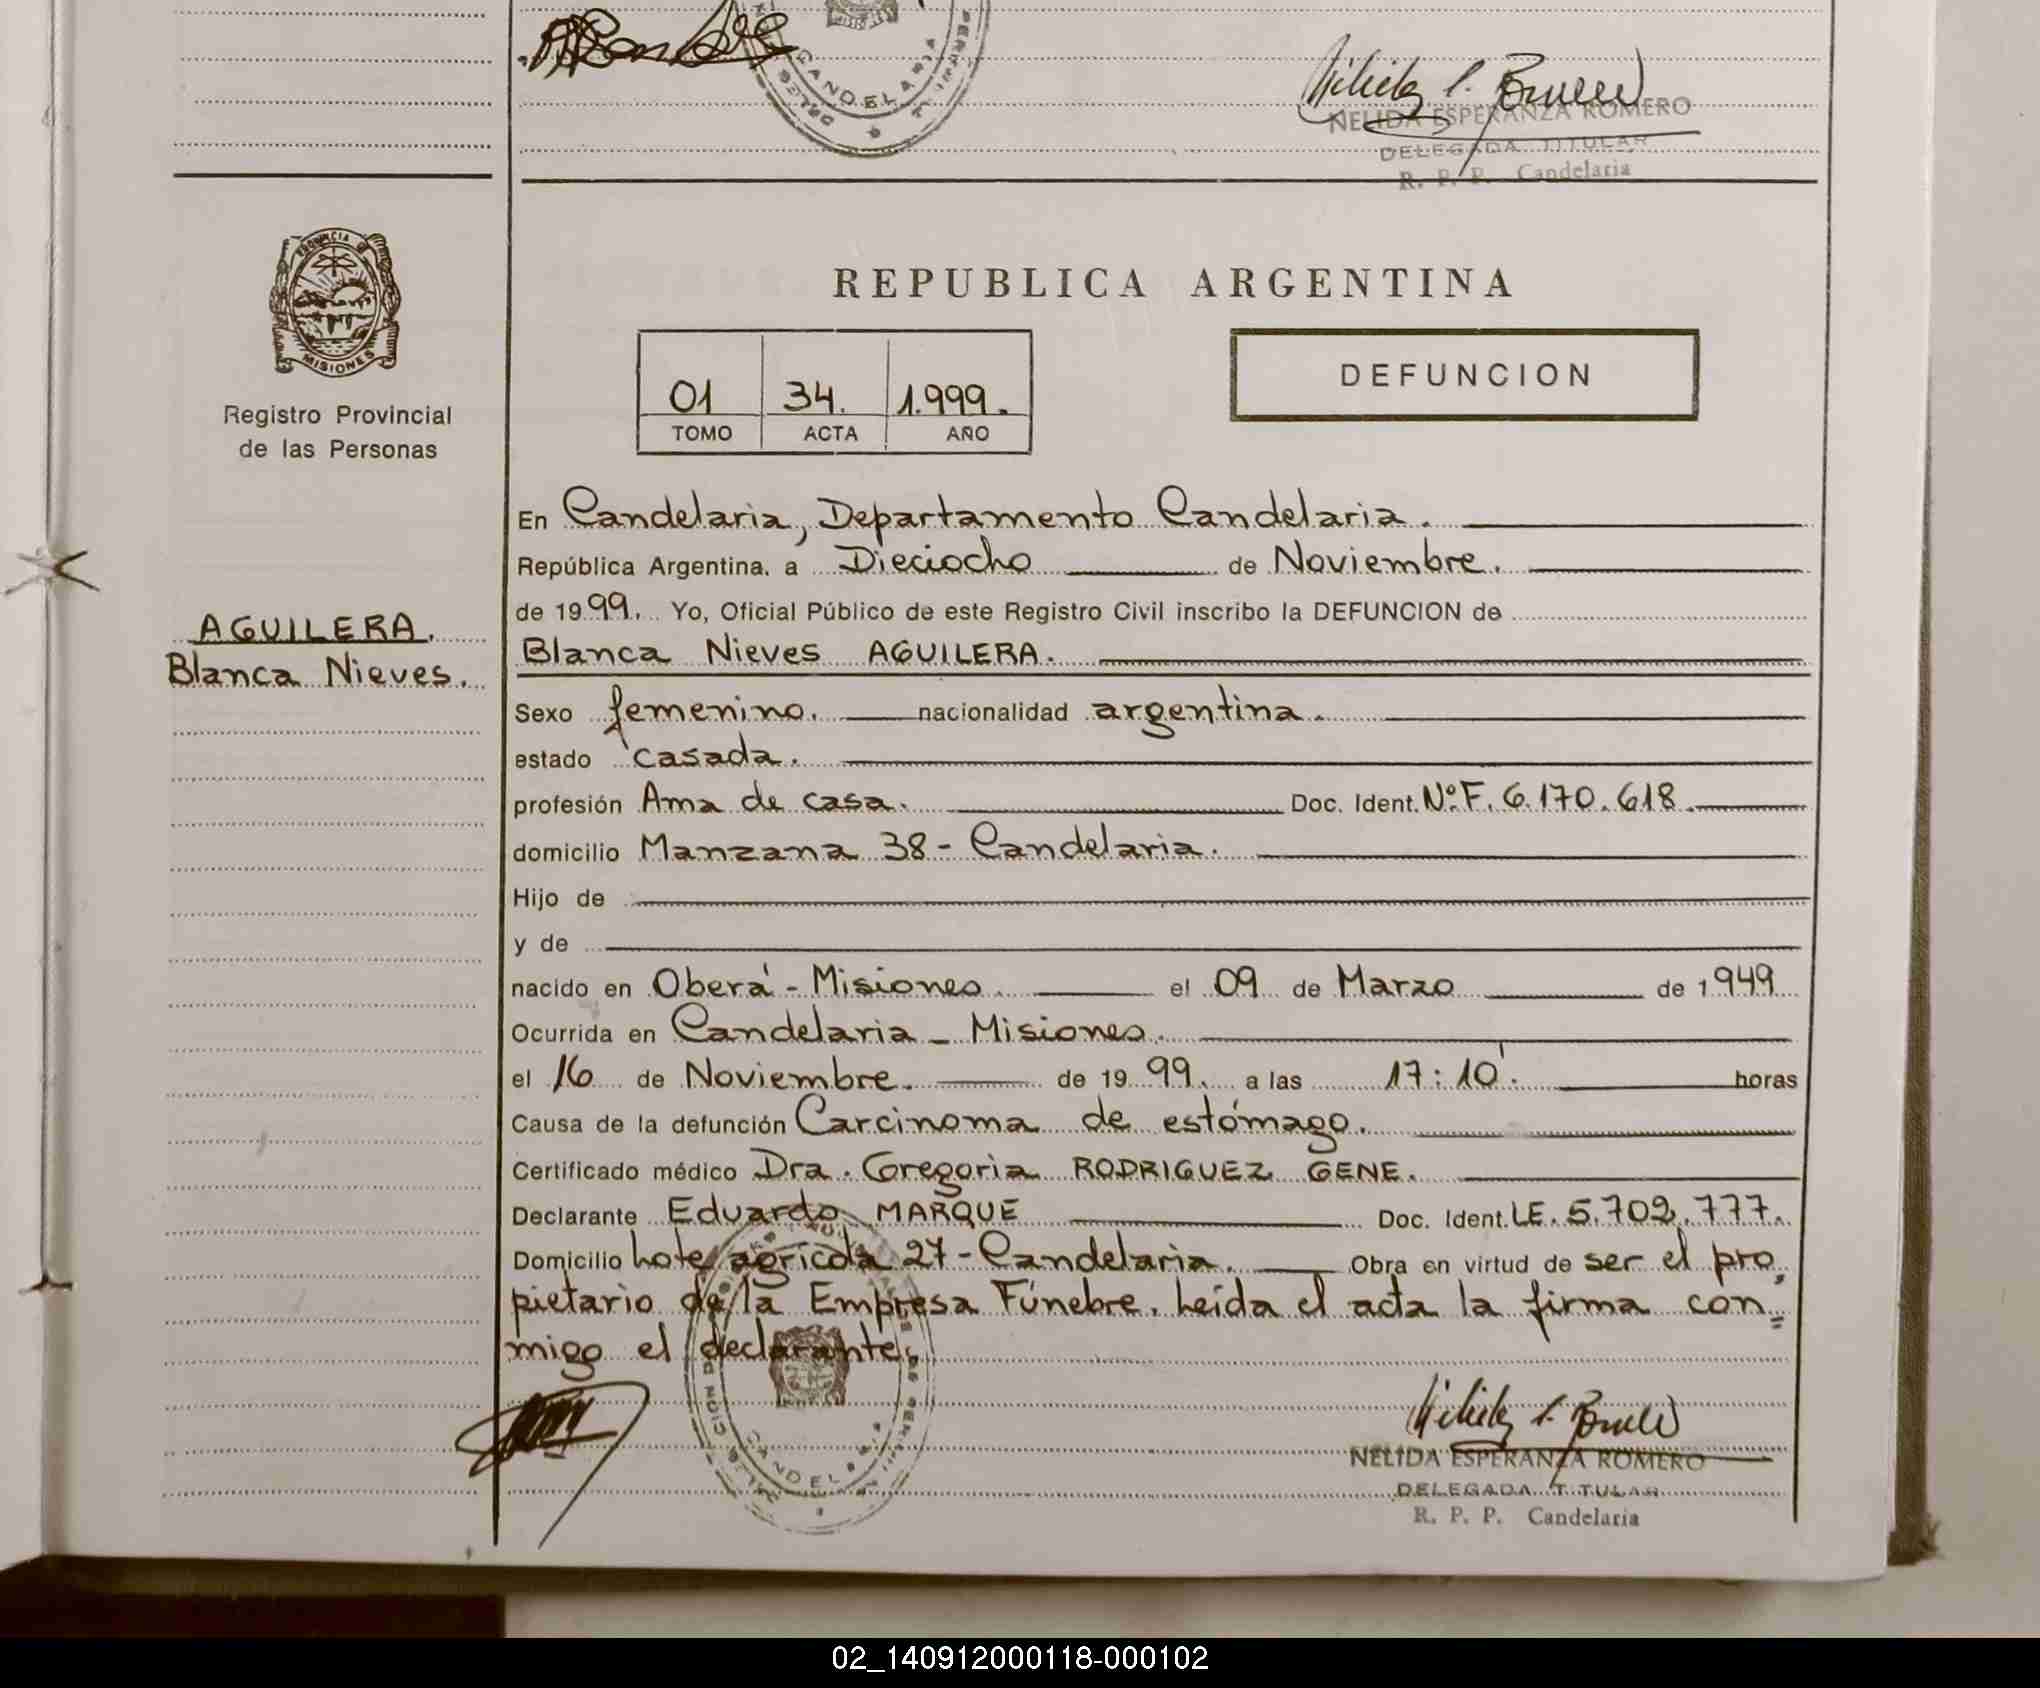 CANDELARIA
NELIDA ESPERANZA ROMERO
DELEGADA TITULAR
R. P. P. Candelaria
PROVINCIA DE
MISIONES
Registro Provincial
de las Personas
AGUILERA.
Blanca Nieves.
REPUBLICA ARGENTINA
01 34. 1.999.
TOMO ACTA AÑO
DEFUNCION
En Candelaria, Departamento Candelaria.
República Argentina, a Dieciocho de Noviembre.
de 1999. Yo, Oficial Público de este Registro Civil inscribo la DEFUNCION de
Blanca Nieves AGUILERA.
Sexo femenino. nacionalidad argentina.
estado casada.
profesión Ama de casa. Doc. Ident. Nº.F. 6.170.618.
domicilio Manzana 38 - Candelaria.
Hijo de
y de
nacido en Oberá - Misiones. el 09 de Marzo de 1949
Ocurrida en Candelaria - Misiones.
el 16 de Noviembre. de 1999. a las 17:10'. horas
Causa de la defunción Carcinoma de estómago.
Certificado médico Dra. Gregoria RODRIGUEZ GENE.
Declarante Eduardo MARQUE Doc. Ident. LE. 5.702.777.
Domicilio Lote agrícola 27 - Candelaria. Obra en virtud de ser el pro
pietario de la Empresa Fúnebre. Leída el acta la firma con=
migo el declarante.
CANDELARIA
NELIDA ESPERANZA ROMERO
DELEGADA TITULAR
R. P. P. Candelaria
02_140912000118-000102